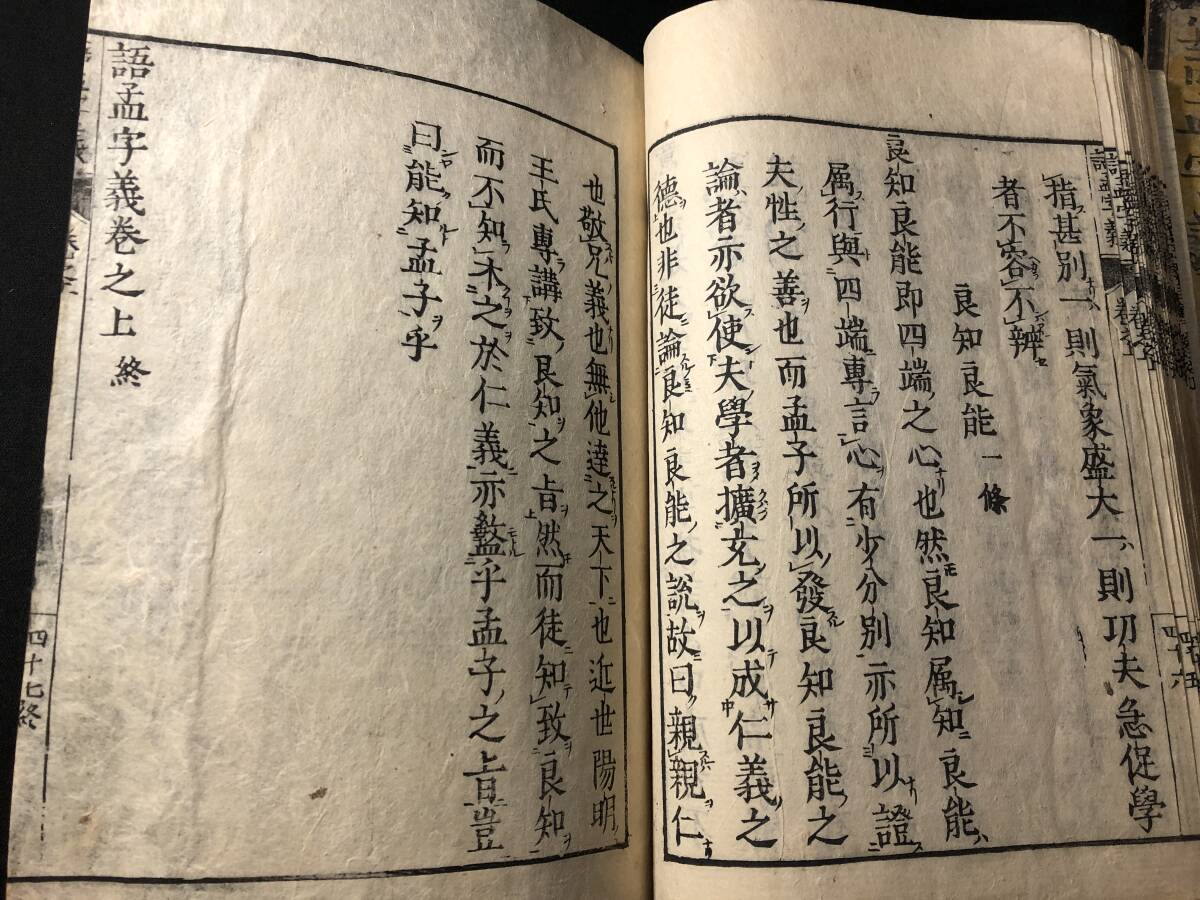 指甚別一則氣象盛大一則功夫急促學
者不容不辨
良知良能一條
良知良能即四端之心也然良知属知良能
属行與四端專言心有少分別亦所以證
夫性之善也而孟子所以發良知良能之
論者亦欲使夫學者擴充之以成仁義之
德也非徒論良知良能之説故曰親親仁
也敬兄義也無他達之天下也近世陽明
王氏專講致良知之旨然而徒知致良知
而不知本之於仁義亦盭乎孟子之旨豈
曰能知孟子乎
語孟字義巻之上 終
四十七終